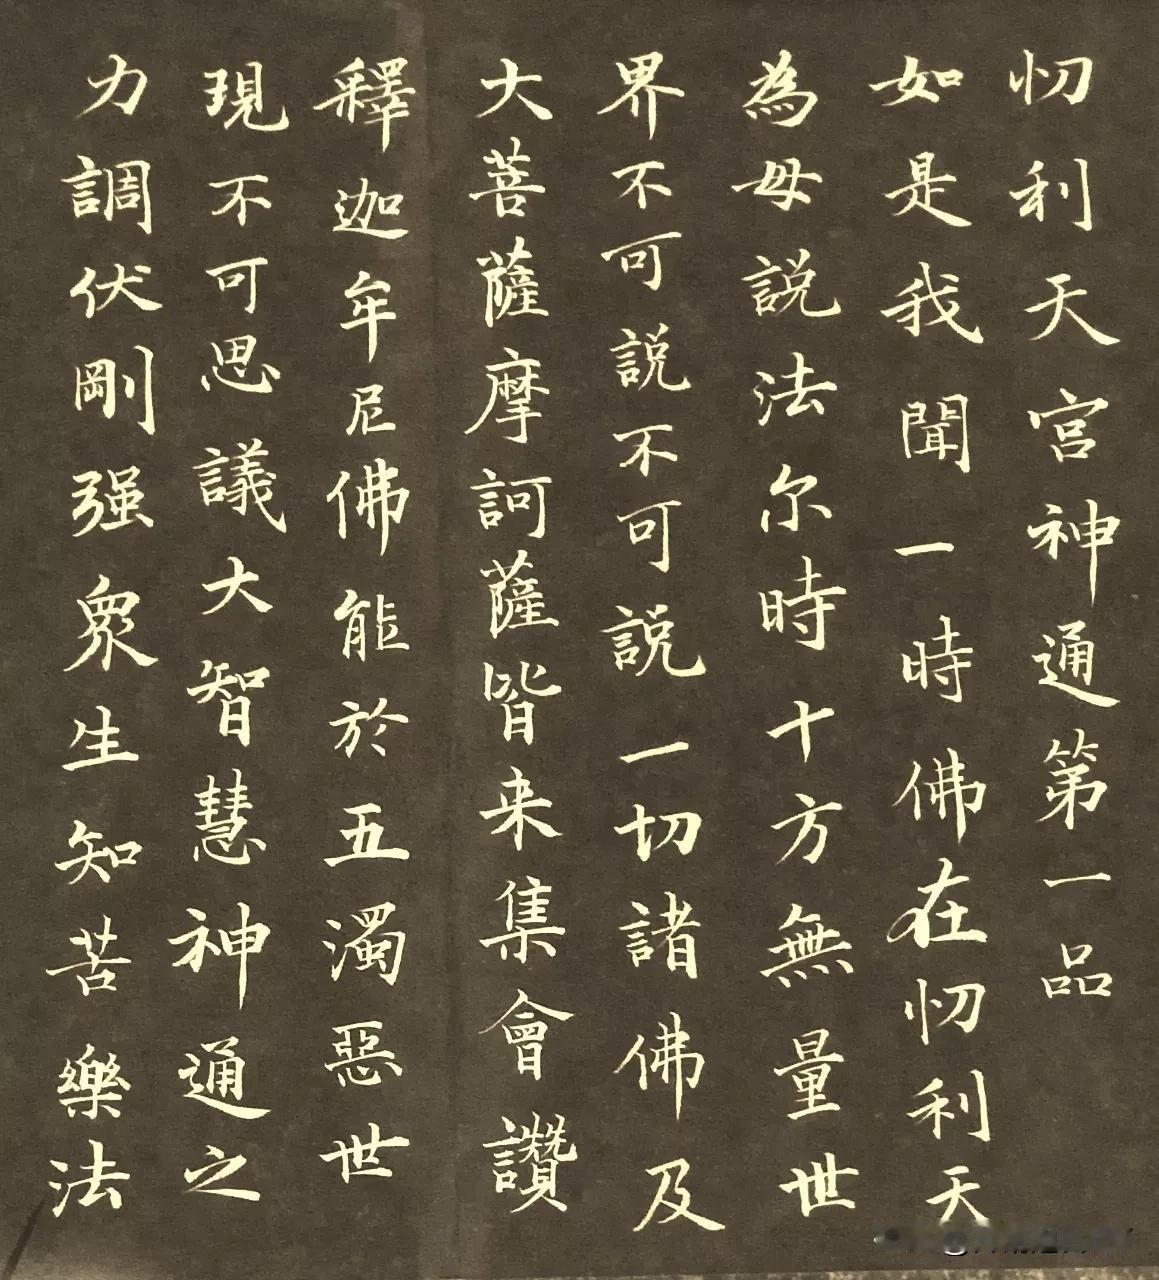 忉利天宫神通第一品
如是我聞一時佛在忉利天
為母説法尔時十方無量世
界不可説不可説一切諸佛及
大菩薩摩訶薩皆来集會讚
釋迦牟尼佛能於五濁惡世
現不可思議大智慧神通之
力調伏剛强衆生知苦樂法